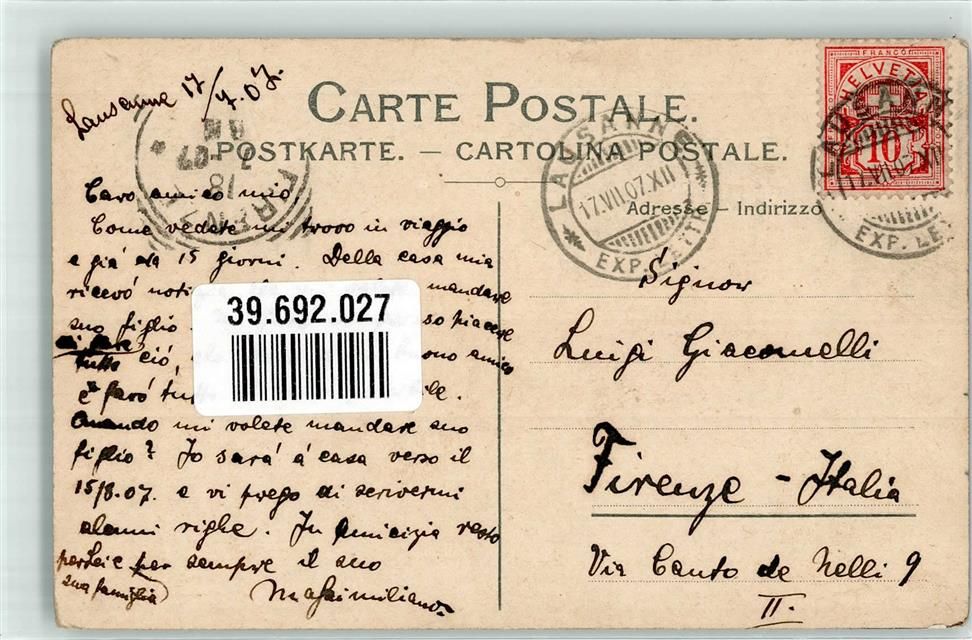 Lausanne 17/7.07.
CARTE POSTALE.
POSTKARTE. — CARTOLINA POSTALE.
Adresse – Indirizzo
FRANCO
HELVETIA
10
LAUSANNE
17.VII.07.XII
EXP. LETT.
LAUSANNE
17.VII.07.XII
EXP. LETT.
FIRENZE
18
7 07
Caro amico mio.
Come vedete mi trovo in viaggio
e già da 15 giorni. Della casa mia
ricevo mandare
suo figlio. so piacere
di fare ció buono amico
tutto
e faró
Quando mi volete mandare suo
figlio? Io sará á casa verso il
15/8.07. e vi prego di scrivermi
alcuni righe. In amicizia resto
per Lei e per sempre il suo
sua famiglia Massimiliano.
39.692.027
Signor
Luigi Giacomelli
Firenze - Italia
Via Canto de Nelli 9
II.